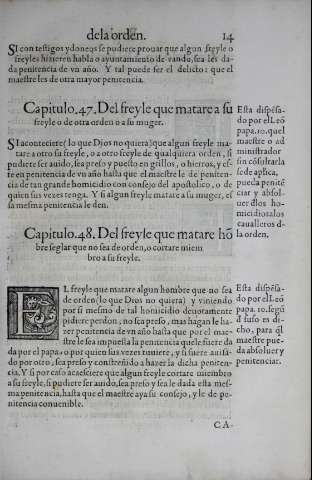 dela orden. 14
SI con testigos ydoneos se pudiere prouar que algun freyle o
freyles hizieren habla o ayuntamiento de vando, sea les da-
da penitencia de vn año. Y tal puede ser el delicto: que el
maestre les de otra mayor penitencia.
Capitulo.47. Del freyle que matare a su
freyle o de otra orden o a su muger.
SI aconteciere (lo que Dios no quiera) que algun freyle ma-
tare a otro su freyle, o a otro freyle de qualquiera orden, si
pudiere ser auido, sea preso y puesto en grillos, o hierros, y es-
te en penitencia de vn año hasta que el maestre le de peniten-
cia de tan grande homicidio con consejo del apostolico, o de
quien sus vezes tenga. Y si algun freyle matare a su muger, es
sa mesma penitencia le den.
Esta dispēsa-
do por el Leō
papa.10. quel
maestre o ad
ministrador
sin cōsultarla
sede aplica,
pueda penitē
ciar y absol-
uer dlos ho-
micidios alos
caualleros d-
la orden.
Capitulo.48. Del freyle que matare hō
bre seglar que no sea de orden, o cortare miem
bro a su freyle.
EL freyle que matare algun hombre que no sea
de orden (lo que Dios no quiera) y viniendo
por si mesmo de tal homicidio deuotamente
pidiere perdon, no sea preso, mas hagan le ha-
zer penitencia de vn año hasta que por el mae-
stre le sea impuesta la penitencia que le fuere da
da por el papa, o por quien sus vezes tuuiere, y si fuere auisa-
do por otro, sea preso y constreñido a hazer la dicha peniten-
cia. Y si por caso acaesciere que algun freyle cortare miembro
a su freyle, si pudiere ser auido, sea preso y sea le dada esta mes-
ma penitencia, hasta que el maestre aya su consejo, y le de pe-
nitencia conuenible.
Esta dispēsa-
do por el Leō
papa.10. segū
d suso es di-
cho, para ql
maestre pue-
da absoluer y
penitenciar.
CA-